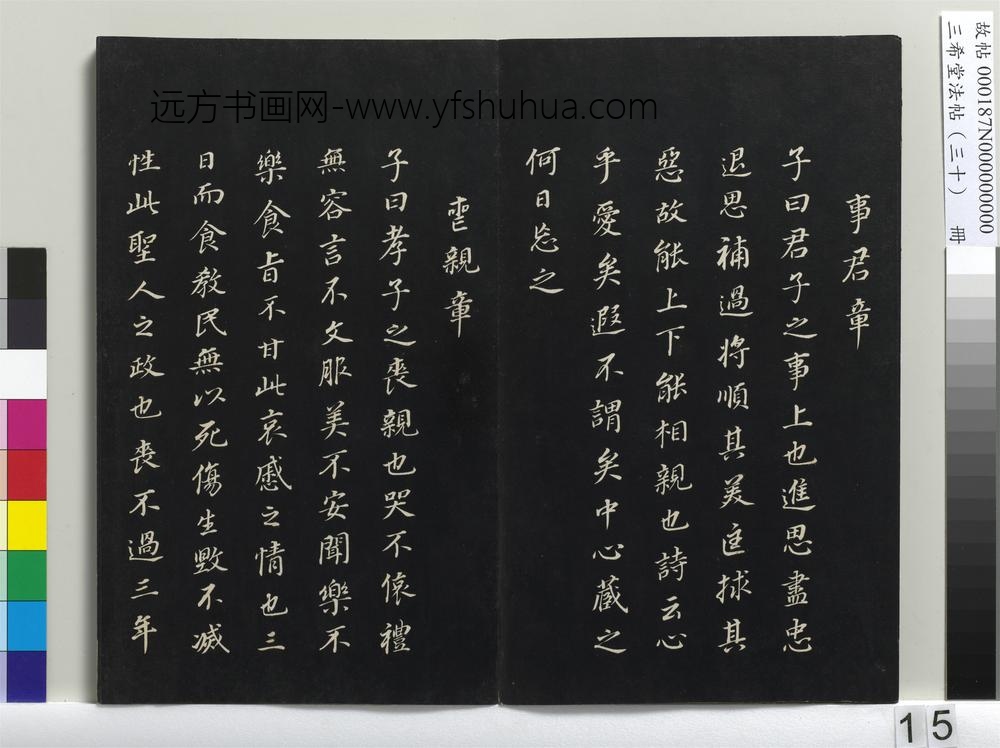 事君章
子曰君子之事上也進思盡忠
退思補過將順其美匡捄其
惡故能上下能相親也詩云心
乎愛矣遐不謂矣中心藏之
何日忘之
喪親章
子曰孝子之喪親也哭不偯禮
無容言不文服美不安聞樂不
樂食旨不甘此哀慼之情也三
日而食教民無以死傷生毀不滅
性此聖人之政也喪不過三年
远方书画网-www.yfshuhua.com
故帖 000187N000000000
三希堂法帖（三十） 冊
15